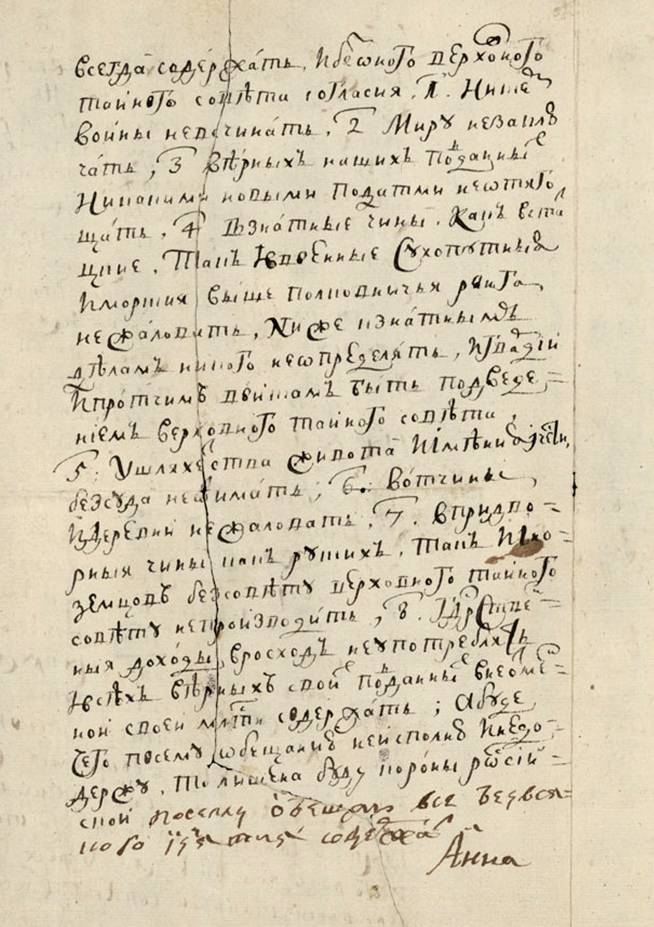 всегда содержать, и без оного верховного
тайного совѣта согласия, 1. Ни с кем
войны невсчинать, 2 Миру незаклю
чать, 3 вѣрных наших подданных
Никакими новыми податми неотяго
щать, 4 Взнатные чины, какъ встац
цкие, такъ и военные сухопутныя
И морския выше полковничья ранга
нежаловать, Ниже кзнатнымъ
дѣламъ никого неопределять, и гвардии
И протчимъ войскамъ быть подведе=
ниемъ верховного тайного совѣта,
5: Ушляхетства живота и имѣния и чести,
безсуда неотимать, 6: вотчины
и деревни нежаловать, 7. впридво=
рныя чины какъ руских, такъ и ино=
земцовъ безсовѣту верховного тайного
совѣту непроизводить, 8.
ныя доходы вросходъ неупотреблять
И всѣхъ вѣрныхъ своих подданных внеотмѣн=
ной своей млсти содержать; Абуде
чего посему обещанию неисполню и недо=
держу, то лишена буду короны росий=
ской посему обещаю все безвся=
кого содержать
Анна